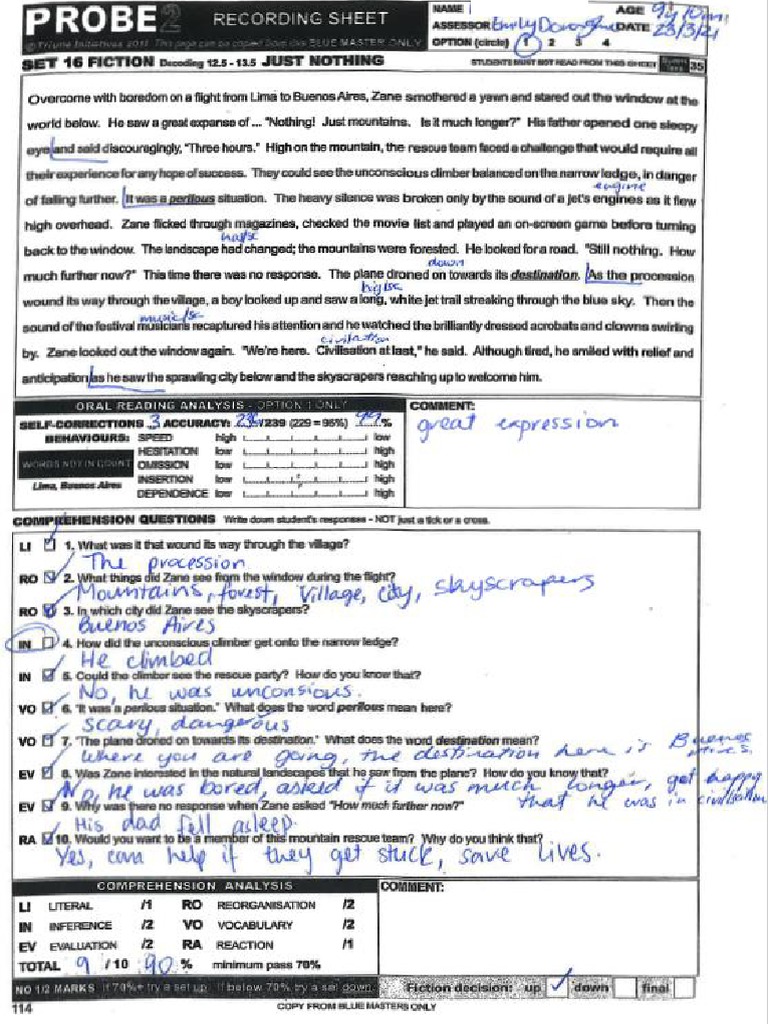 PROBE2 RECORDING SHEET
NAME
AGE 9y 10m
ASSESSOR Emily DATE 23/3/21
OPTION (circle) 1 2 3 4
© Triune Initiatives This page can be copied from this BLUE MASTER ONLY
SET 16 FICTION Decoding 12.5 - 13.5 JUST NOTHING STUDENTS MUST NOT READ FROM THIS SHEET 35
Overcome with boredom on a flight from Lima to Buenos Aires, Zane smothered a yawn and stared out the window at the
world below. He saw a great expanse of ... "Nothing! Just mountains. Is it much longer?" His father opened one sleepy
eye and said discouragingly, "Three hours." High on the mountain, the rescue team faced a challenge that would require all
their experience for any hope of success. They could see the unconscious climber balanced on the narrow ledge, in danger
engine
of falling further. It was a perilous situation. The heavy silence was broken only by the sound of a jet's engines as it flew
high overhead. Zane flicked through magazines, checked the movie list and played an on-screen game before turning
has/sc
back to the window. The landscape had changed; the mountains were forested. He looked for a road. "Still nothing. How
down
much further now?" This time there was no response. The plane droned on towards its destination. As the procession
big/sc
wound its way through the village, a boy looked up and saw a long, white jet trail streaking through the blue sky. Then the
music/sc
sound of the festival musicians recaptured his attention and he watched the brilliantly dressed acrobats and clowns swirling
civilation
by. Zane looked out the window again. "We're here. Civilisation at last," he said. Although tired, he smiled with relief and
anticipation as he saw the sprawling city below and the skyscrapers reaching up to welcome him.
ORAL READING ANALYSIS - OPTION 1 ONLY
SELF-CORRECTIONS 3 ACCURACY: 236/239 (229 = 96%) 99%
BEHAVIOURS: SPEED high low
HESITATION low high
WORDS NOT IN COUNT OMISSION low high
INSERTION low high
Lima, Buenos Aires DEPENDENCE low high
COMMENT:
great expression
COMPREHENSION QUESTIONS Write down student's responses - NOT just a tick or a cross.
LI 1. What was it that wound its way through the village?
The procession
RO 2. What things did Zane see from the window during the flight?
Mountains, forest, village, city, skyscrapers
RO 3. In which city did Zane see the skyscrapers?
Buenos Aires
IN 4. How did the unconscious climber get onto the narrow ledge?
He climbed
IN 5. Could the climber see the rescue party? How do you know that?
No, he was unconsious.
VO 6. "It was a perilous situation." What does the word perilous mean here?
scary, dangerous
VO 7. "The plane droned on towards its destination." What does the word destination mean?
where you are going, the destination here is Buenos Aires.
EV 8. Was Zane interested in the natural landscapes that he saw from the plane? How do you know that?
No, he was bored, asked if it was much longer, get happy
that he was in civilisation
EV 9. Why was there no response when Zane asked "How much further now?"
His dad fell asleep.
RA 10. Would you want to be a member of this mountain rescue team? Why do you think that?
Yes, can help if they get stuck, save lives.
COMPREHENSION ANALYSIS
LI LITERAL /1 RO REORGANISATION /2
IN INFERENCE /2 VO VOCABULARY /2
EV EVALUATION /2 RA REACTION /1
TOTAL 9 /10 90 % minimum pass 70%
COMMENT:
NO 1/2 MARKS If 70%+ try a set up. If below 70% try a set down. Fiction decision: up down final
114 COPY FROM BLUE MASTERS ONLY